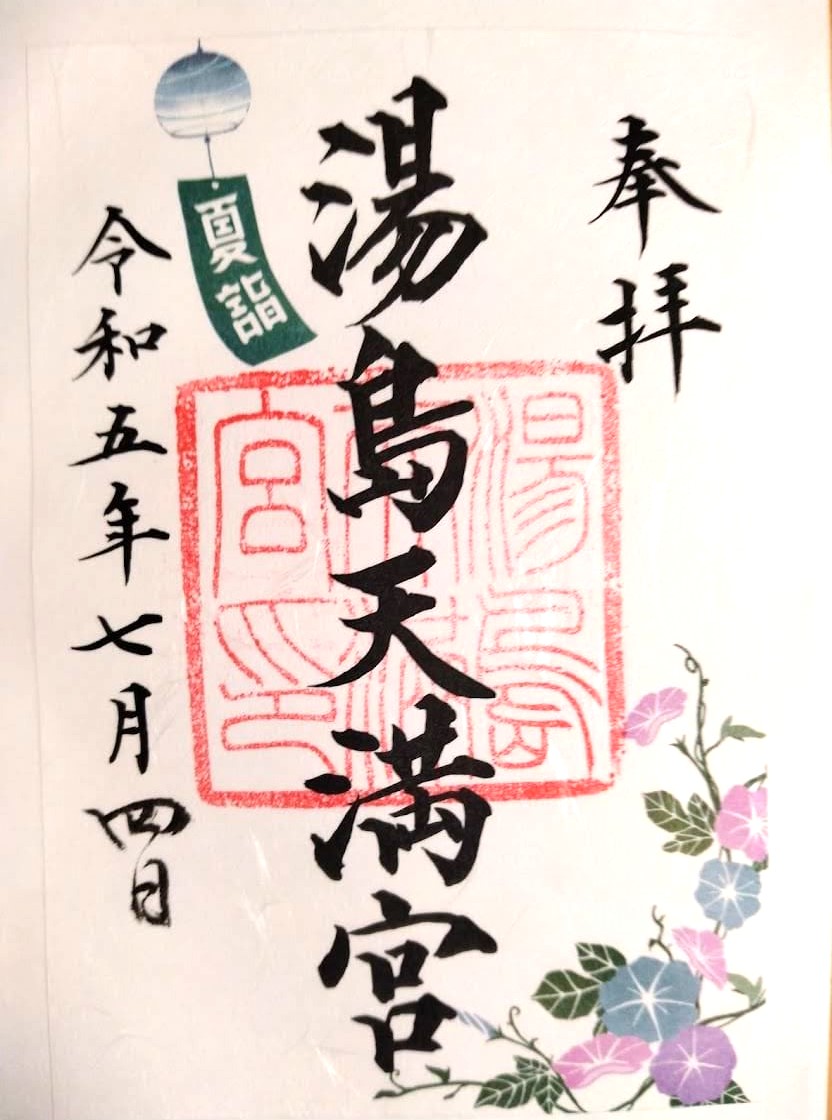 奉拝
湯島天満宮
湯島天満宮印
夏詣
令和五年七月四日